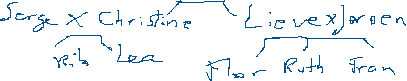 Serge X Christine Lieve x Jeroen
Lea Flor Ruth Fran